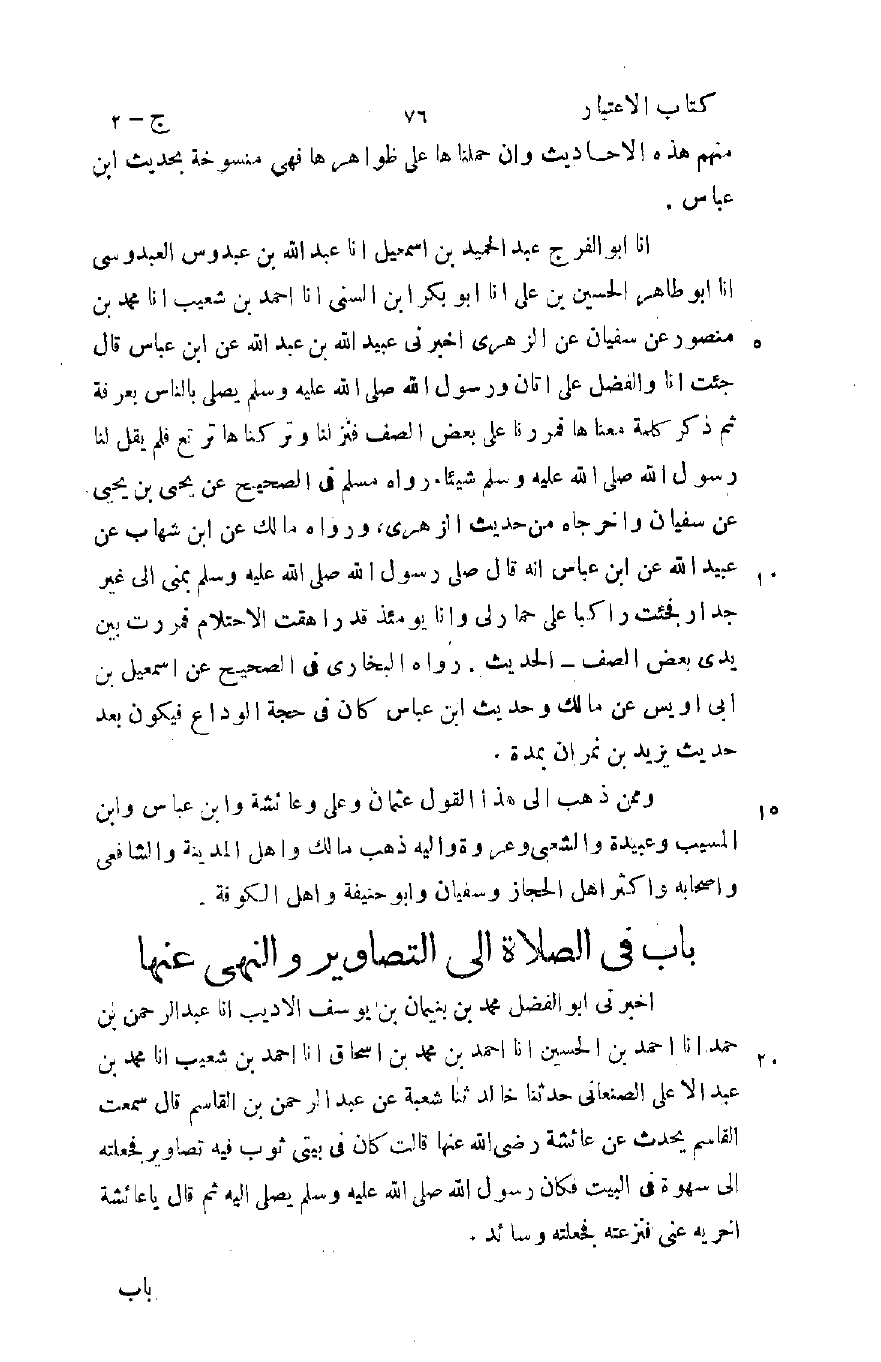 كتاب الاعتبار ٧٦ ج – ٢
منهم هذه الاحاديث وان حملناها على ظواهرها فهى منسوخة بحديث ابن
عباس .
انا ابوالفرج عبد الحميد بن اسمعيل انا عبد الله بن عبدوس العبدوسى
انا ابو طاهر الحسين بن على انا ابو بكر ابن السنى انا احمد بن شعيب انا محمد بن
منصور عن سفيان عن الزهرى اخبرنى عبيد الله بن عبد الله عن ابن عباس قال ٥
جئت انا والفضل على اتان ورسول الله صلى الله عليه وسلم يصلى بالناس بعرفة
ثم ذكر كلمة معناها فمررنا على بعض الصف فنزلنا وتركناها ترتع فلم يقل لنا
رسول الله صلى الله عليه وسلم شيئا. رواه مسلم فى الصحيح عن يحيى بن يحيى
عن سفيان واخرجاه من حديث الزهرى، ورواه مالك عن ابن شهاب عن
عبيد الله عن ابن عباس انه قال صلى رسول الله صلى الله عليه وسلم بمنى الى غير ١٠
جدار فجئت راكبا على حمار لى وانا يومئذ قد راهقت الاحتلام فمررت بين
يدى بعض الصف – الحديث . رواه البخارى فى الصحيح عن اسمعيل بن
ابى اويس عن مالك وحديث ابن عباس كان فى حجة الوداع فيكون بعد
حديث يزيد بن نمران بمدة .
وممن ذهب الى هذا القول عثمان وعلى وعائشة وابن عباس وابن ١٥
المسيب وعبيدة والشعبى وعروة واليه ذهب مالك واهل المدينة والشافعى
واصحابه واكثر اهل الحجاز وسفيان وابو حنيفة واهل الكوفة .
باب فى الصلاة الى التصاوير والنهى عنها
اخبرنى ابو الفضل محمد بن بنيمان بن يوسف الاديب انا عبدالرحمن بن
حمد انا احمد بن الحسين انا احمد بن محمد بن اسحاق انا احمد بن شعيب انا محمد بن ٢٠
عبد الاعلى الصنعانى حدثنا خالد ثنا شعبة عن عبد الرحمن بن القاسم قال سمعت
القاسم يحدث عن عائشة رضى الله عنها قالت كان فى بيتى ثوب فيه تصاوير فجعلته
الى سهوة فى البيت فكان رسول الله صلى الله عليه وسلم يصلى اليه ثم قال ياعائشة
اخريه عنى فنزعته فجعلته وسائد .
باب